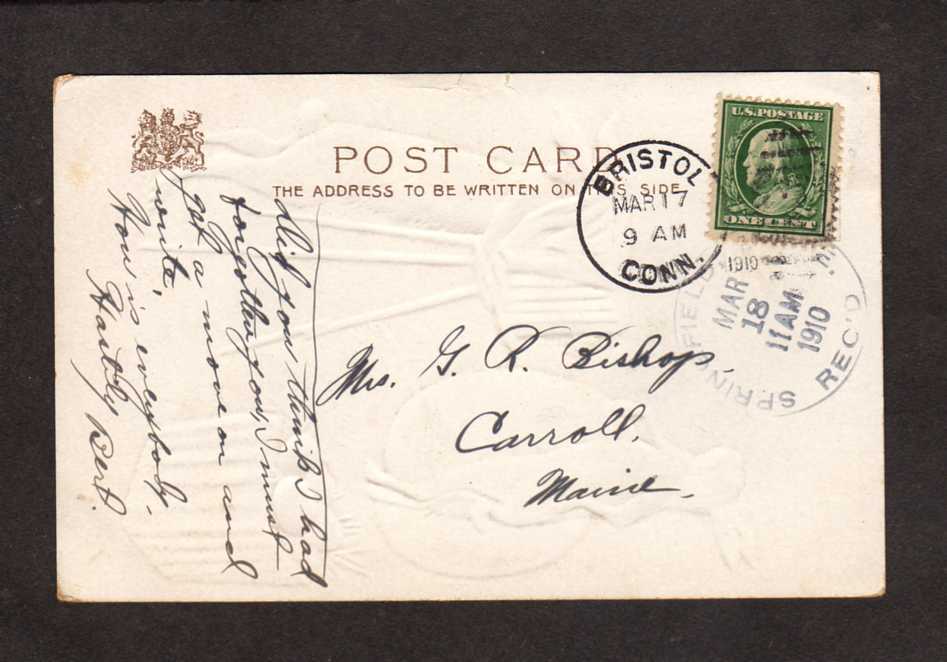 POST CARD
THE ADDRESS TO BE WRITTEN ON THIS SIDE
U.S. POSTAGE
ONE CENT
BRISTOL
MAR 17
9 AM
1910
CONN.
SPRINGFIELD
MAR
18
11 AM
1910
REC'D
Did you think I had
forgotten you, I must
get a move on and
write,
How is everybody.
Hastily Bert.
Mrs. G. R. Bishop,
Carroll,
Maine.